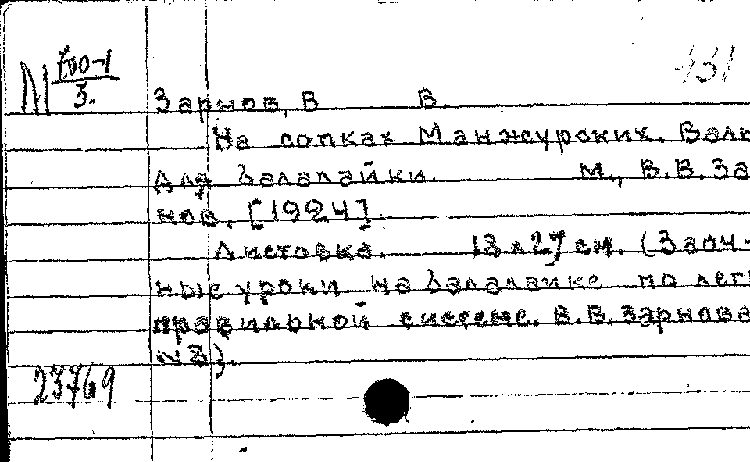 М 700-1
3.
431
Зарнов, В В.
На сопках Манжурских. Валь
для балалайки. М., В.В. За
нов. [1924].
Листовка. 18 х 27 см. (Заоч-
ные уроки на балалайке по лег
правильной системе. В.В. Зарнова
№ 3).
23769